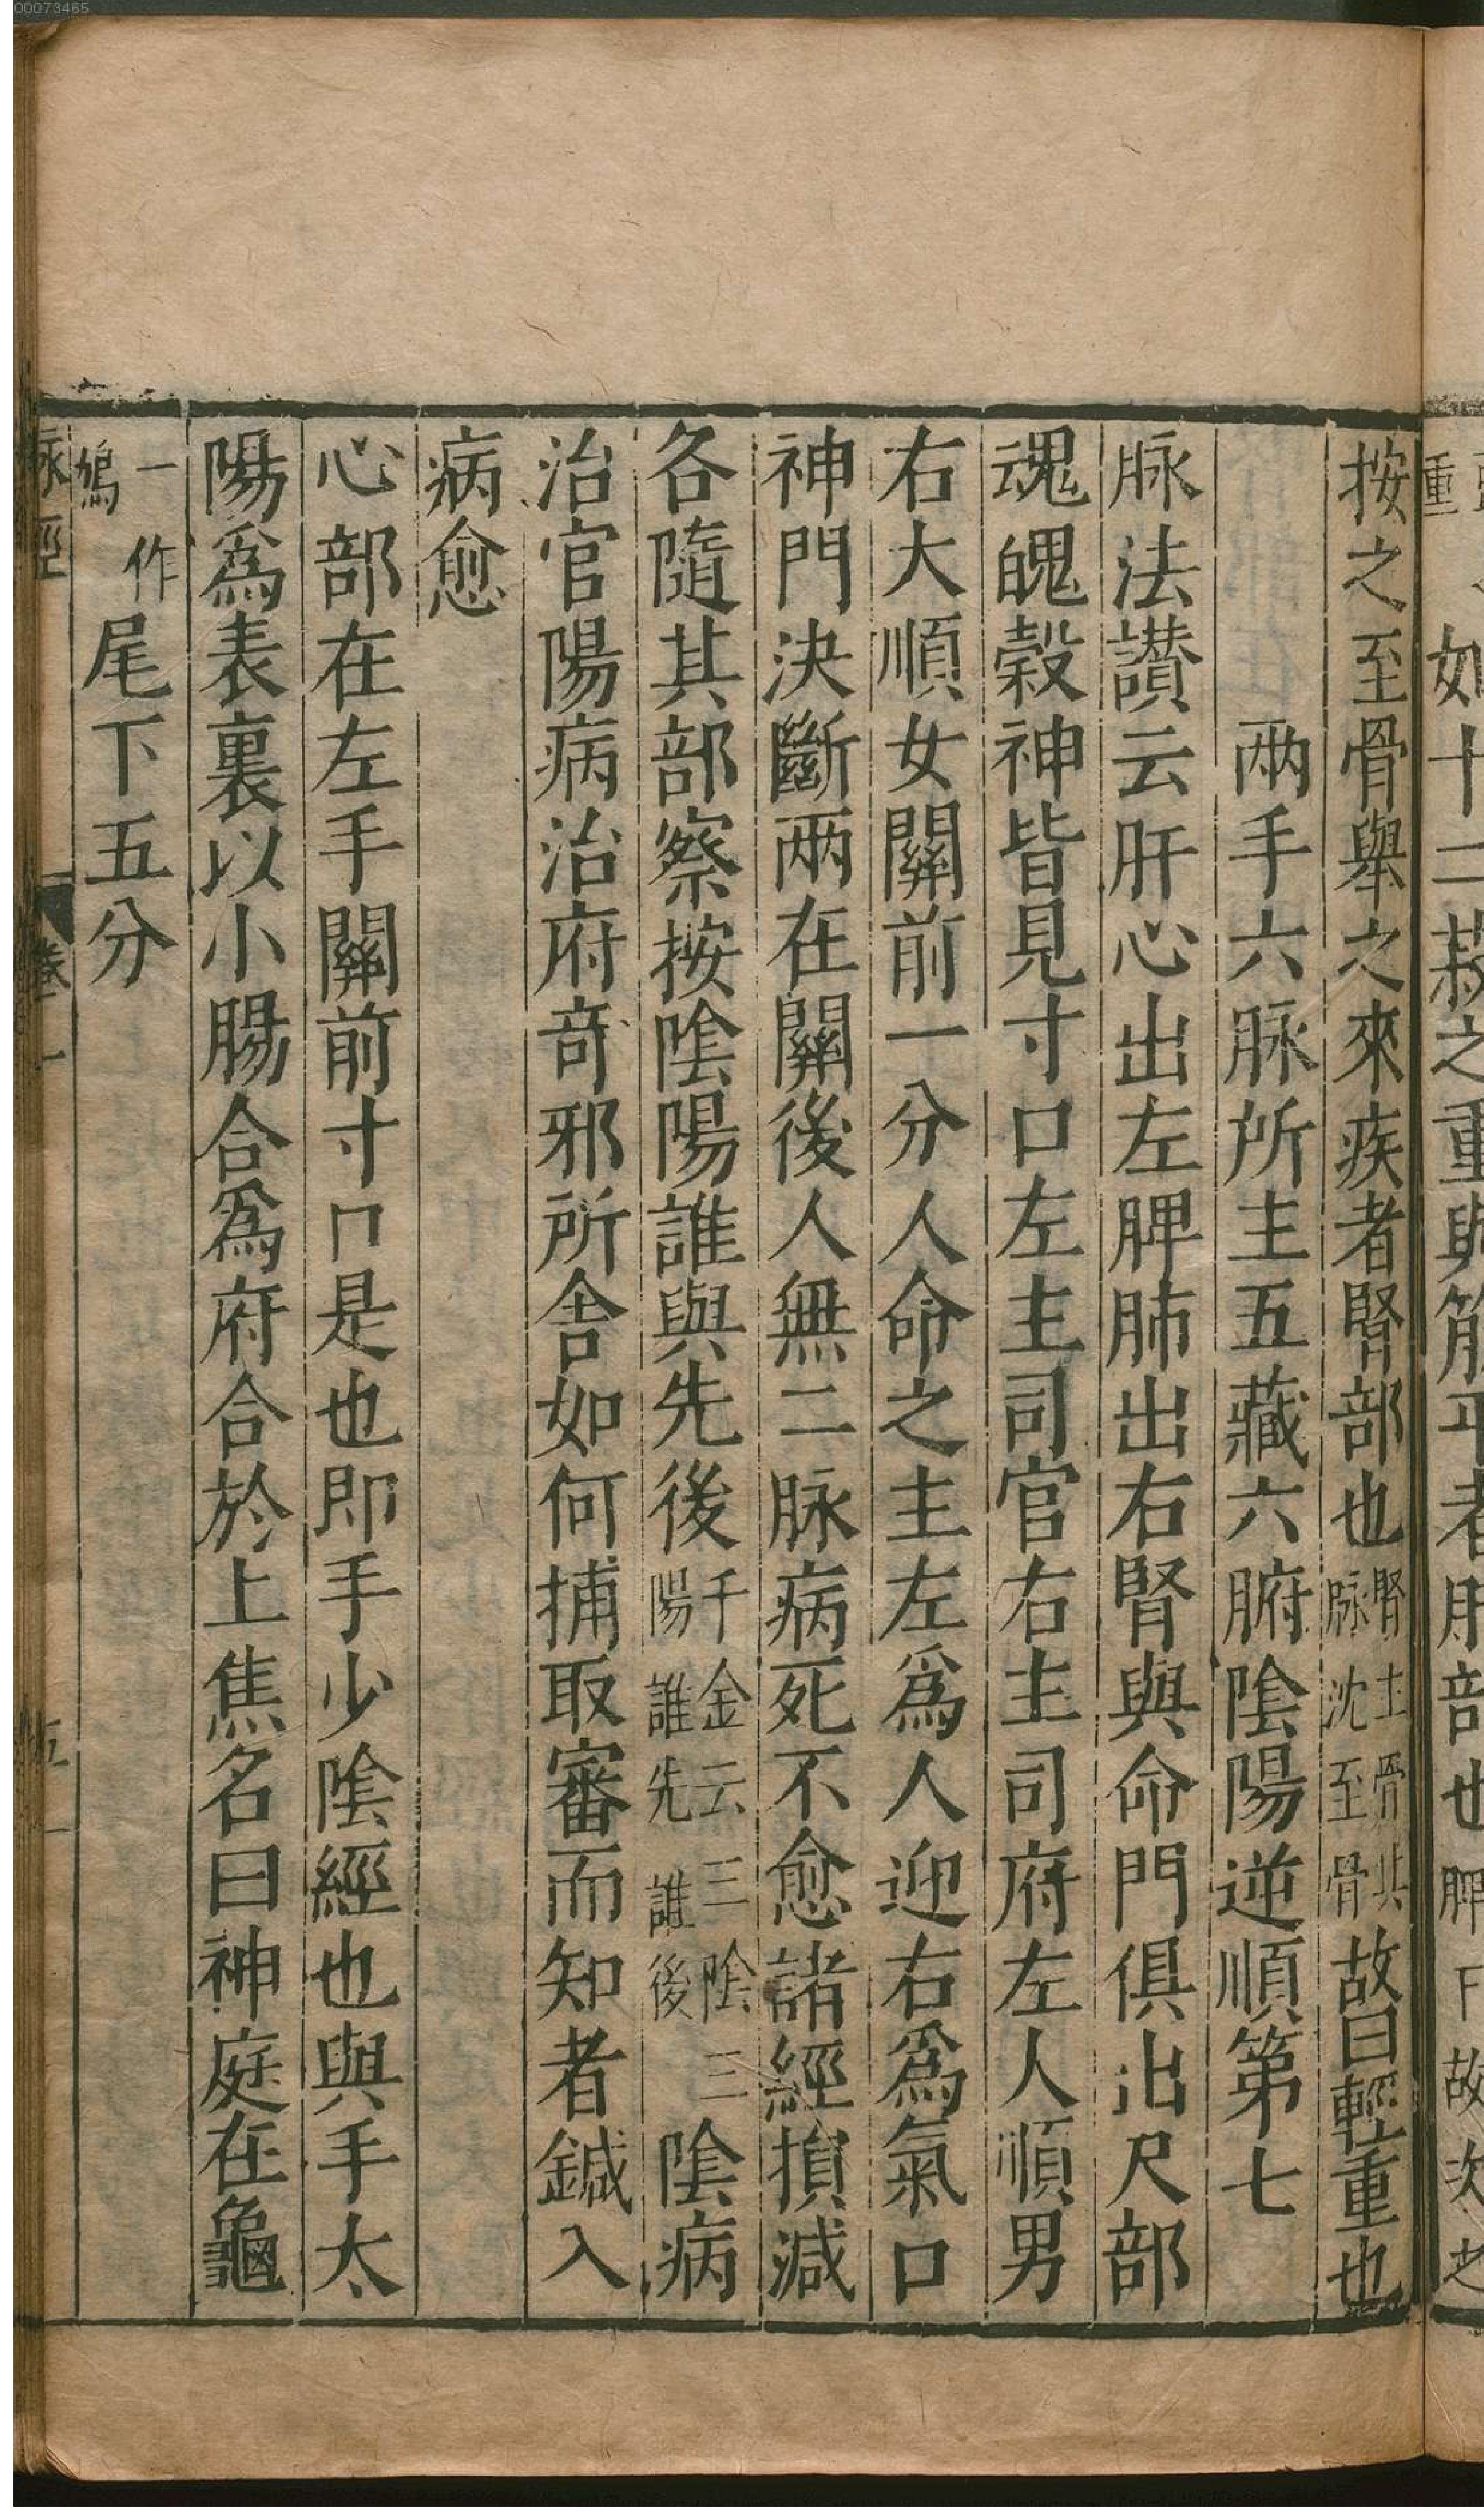 00073465
如十二菽之重與筋平者肝部也
按之至骨舉之來疾者腎部也腎主骨其脉沈至骨故曰輕重也
兩手六脉所主五藏六腑陰陽逆順第七
脉法讃云肝心出左脾肺出右腎與命門俱出尺部
魂魄穀神皆見寸口左主司官右主司府左人順男
右大順女關前一分人命之主左爲人迎右爲氣口
神門決斷兩在關後人無二脉病死不愈諸經損減
各隨其部察按陰陽誰與先後千金云三陰三陽誰先誰後陰病
治官陽病治府竒邪所舍如何捕取審而知者鍼入
病愈
心部在左手關前寸口是也即手少陰經也與手太
陽爲表裏以小腸合爲府合於上焦名曰神庭在龜
一作鳩尾下五分
脉經 卷一